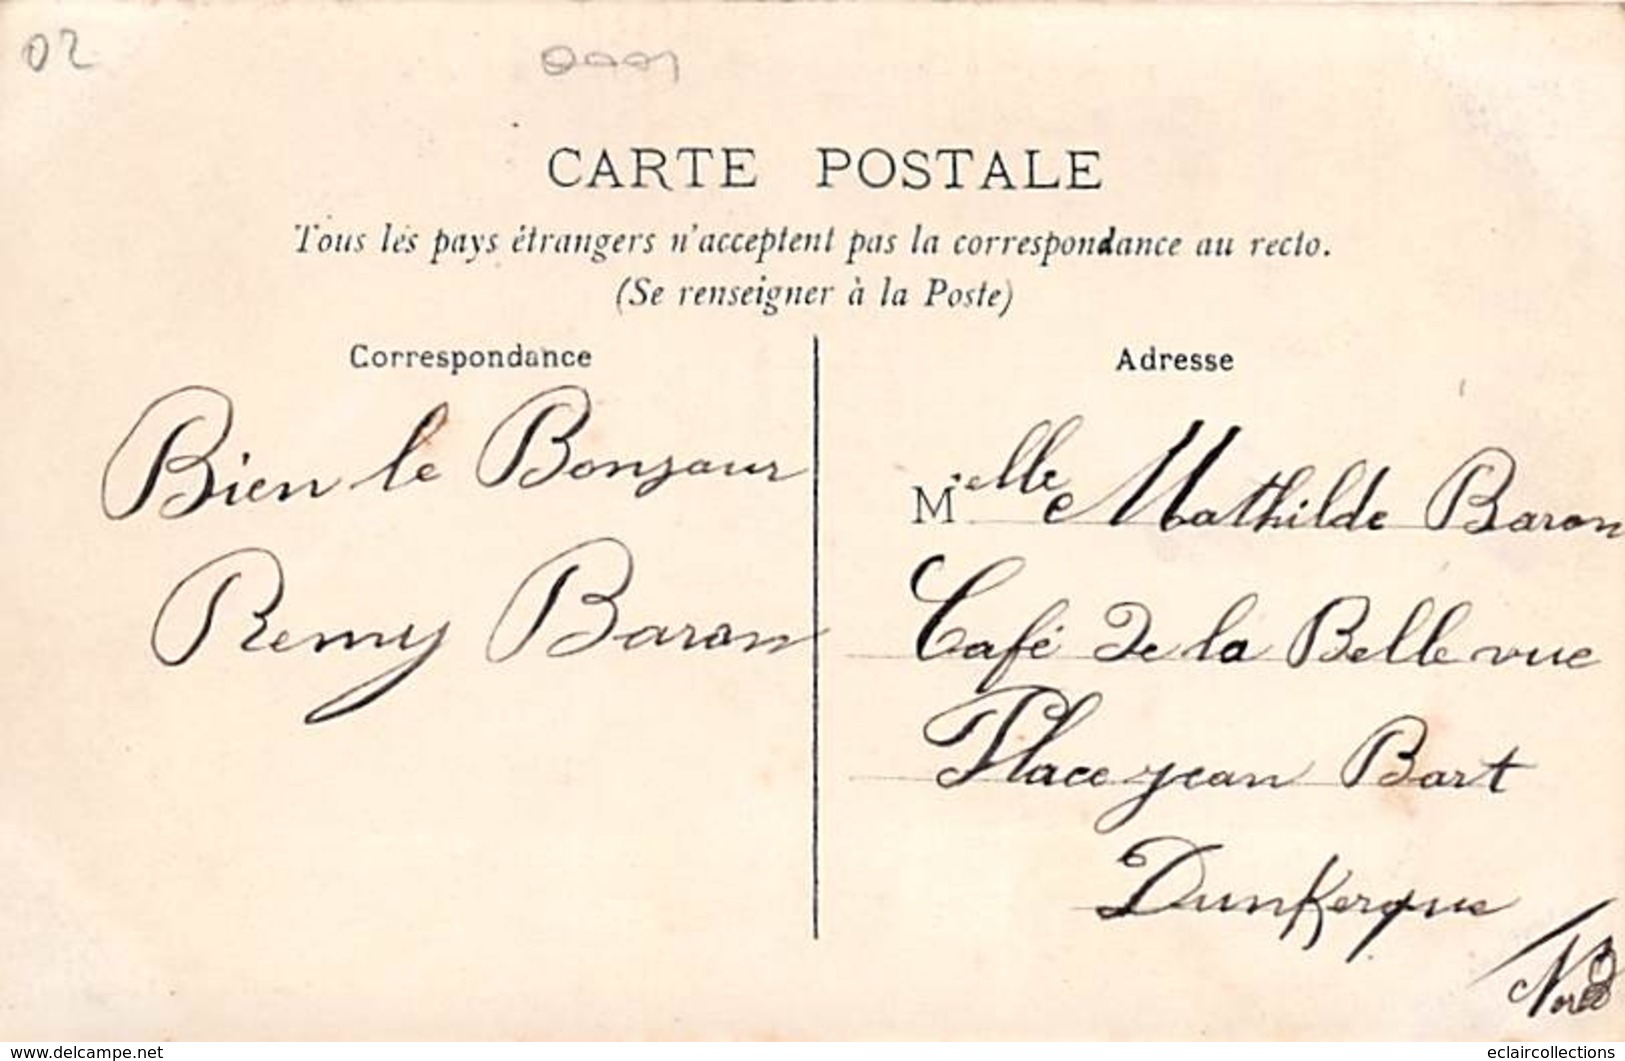 02
CARTE POSTALE
Tous les pays étrangers n'acceptent pas la correspondance au recto.
(Se renseigner à la Poste)
Correspondance
Bien le Bonjour
Remy Baron
Adresse
Melle Mathilde Baron
Café De la Belle vue
Place jean Bart
Dunkerque
Nord
www.delcampe.net
eclaircollections